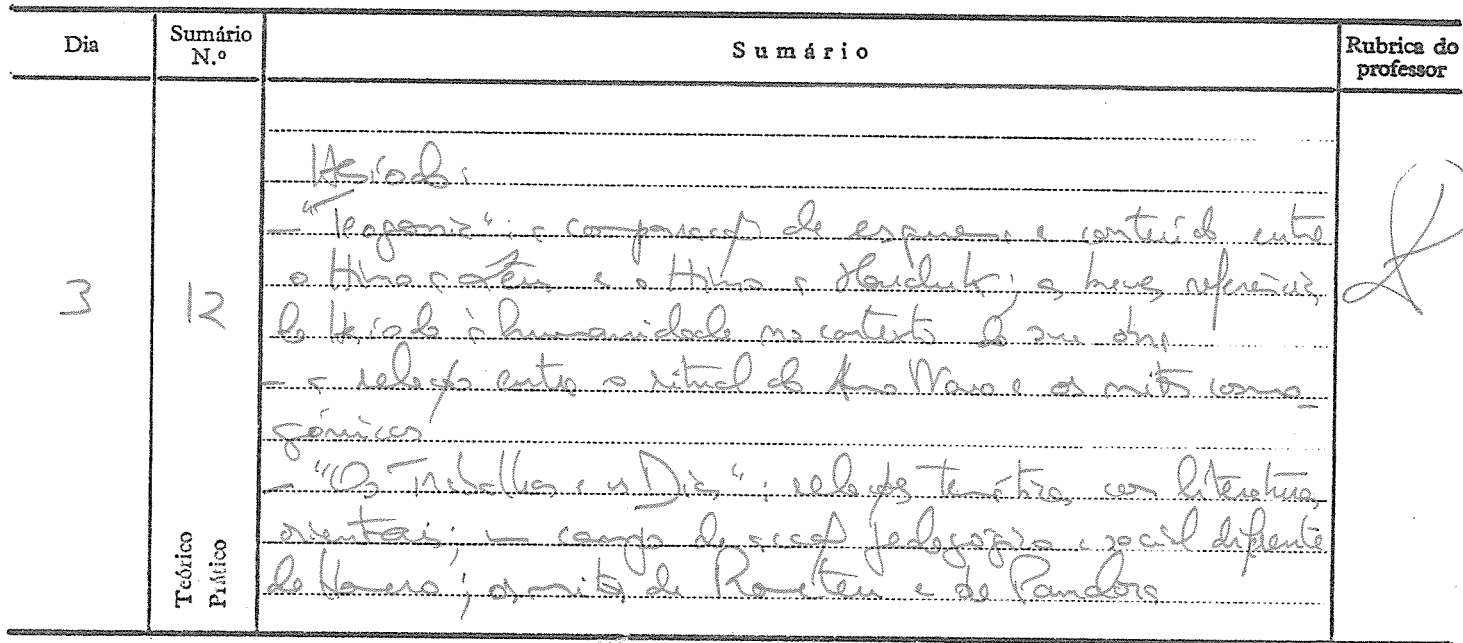 Dia
Sumário N.º
Sumário
Rubrica do professor
3
12
Teórico
Prático
Hesíodo:
- "Teogonia": a comparação de esquema e conteúdo entre
o Hino a Zeus e o Hino a Marduk; as breves referências
de Hesíodo à humanidade no contexto da sua obra
- a relação entre o ritual do Ano Novo e os mitos cosmo-
gónicos
- "Os Trabalhos e os Dias": relações temáticas com literaturas
orientais; um campo de acção pedagógica e social diferente
de Homero; os mitos de Prometeu e de Pandora